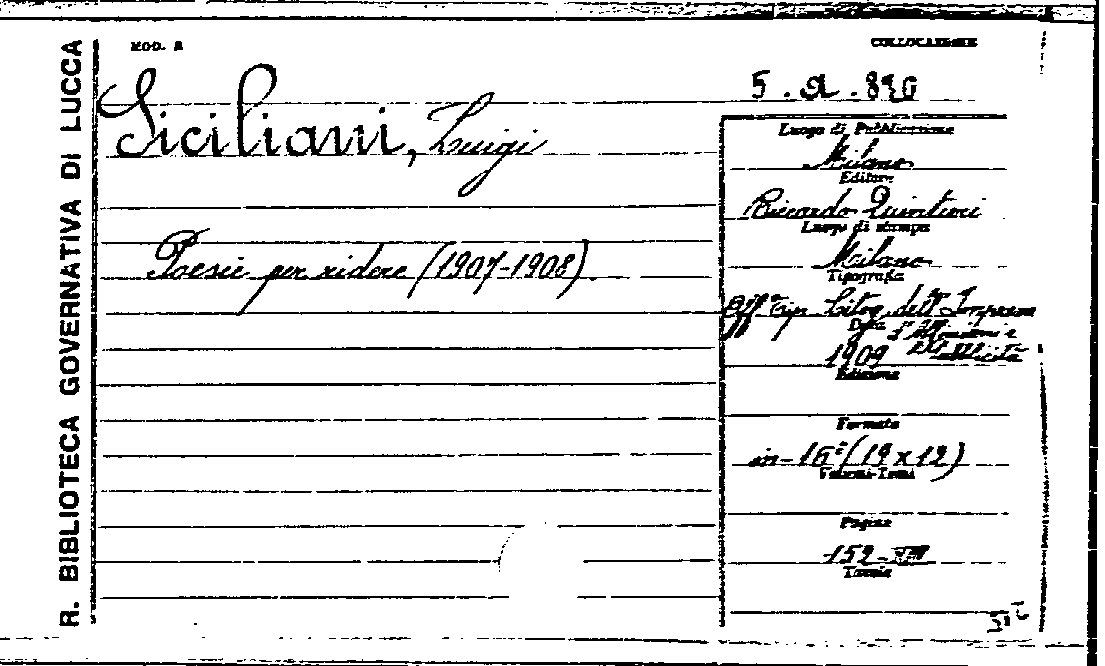 R. BIBLIOTECA GOVERNATIVA DI LUCCA
MOD. A
COLLOCAZIONE
Siciliani, Luigi
Poesie per ridere (1907-1908).
Luogo di Pubblicazione
Milano
Editore
Riccardo Quintieri
Luogo di stampa
Milano
Tipografia
Off. Tip. Litog. dell' Impresa
Data
1909
Edizione
Formato
in-16° (19 x 12)
Volumi-Tomi
Pagine
152-VIII
Tavole